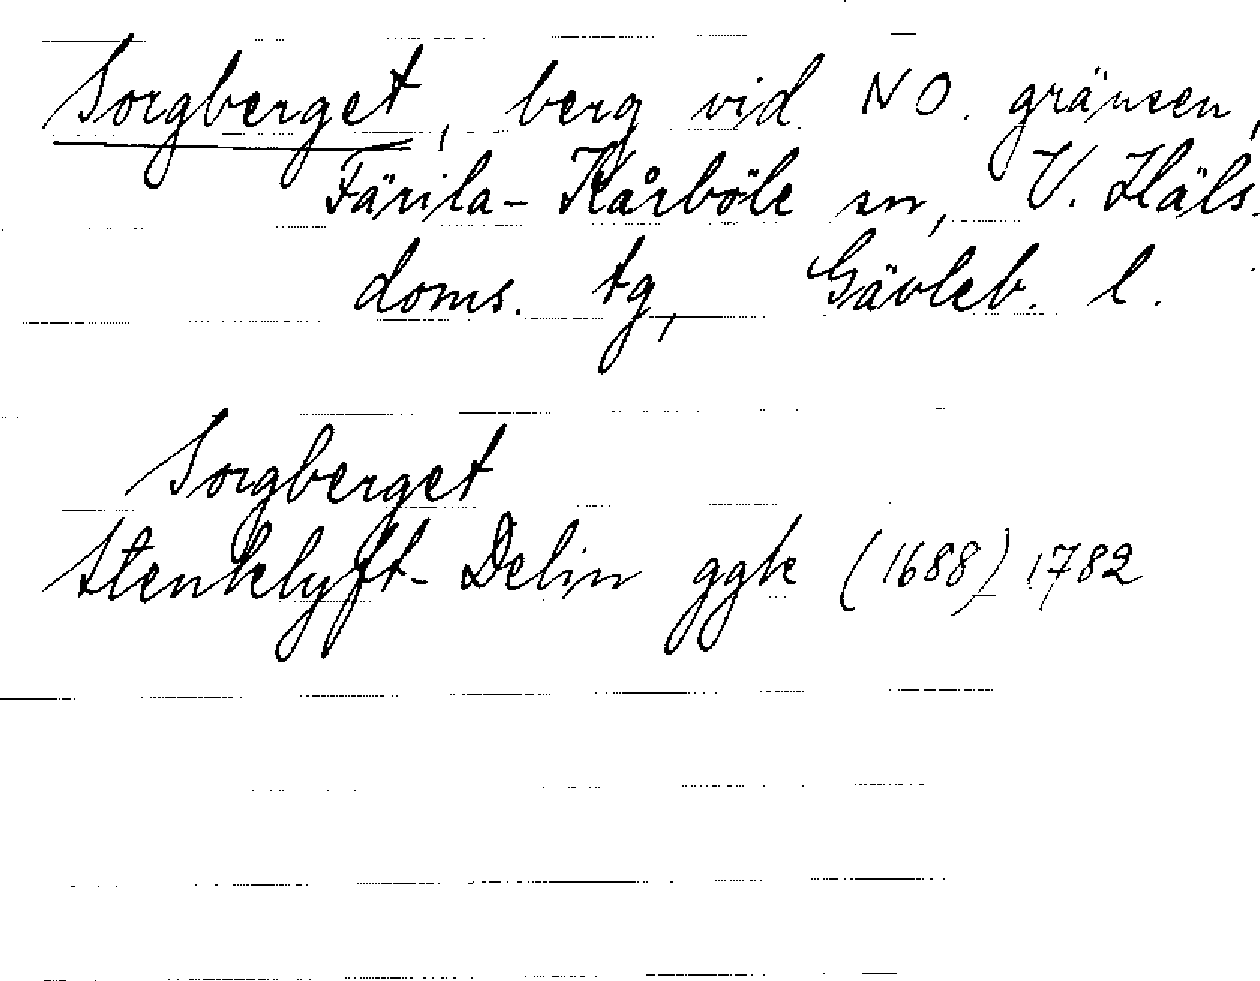 Sorgberget, berg vid NO. gränsen,
Färila-Kårböle sn, V. Häls.
doms. tg, Gävleb. l.
Sorgberget
Stenklyft- Delin ggk (1688) 1782